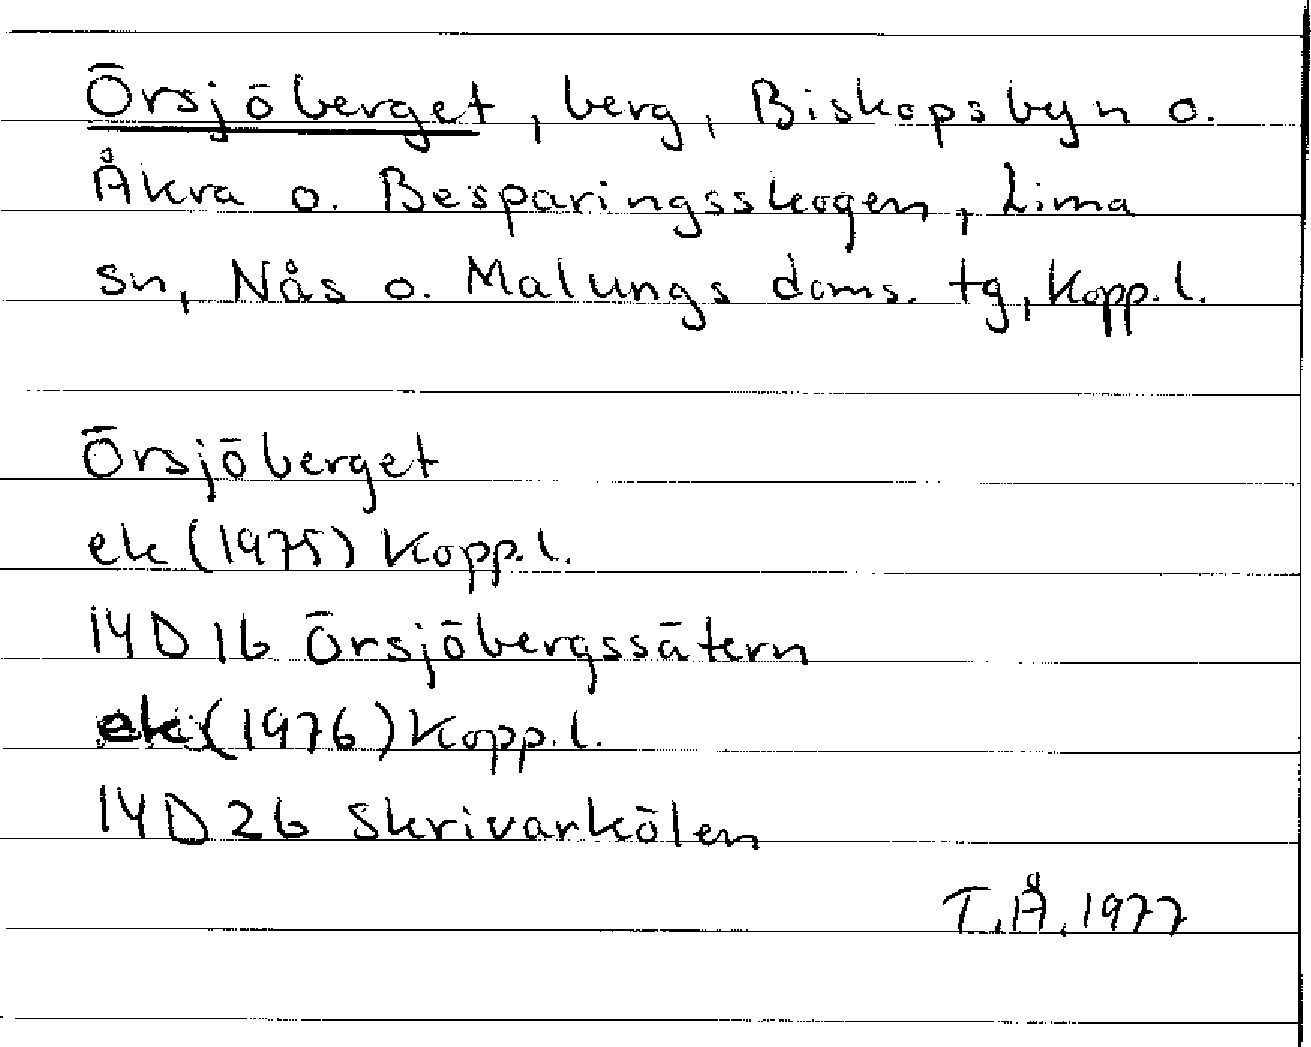 Örsjöberget, berg, Biskopsbyn o.
Åkra o. Besparingsskogen, Lima
sn, Nås o. Malungs doms. tg, Kopp. l.
Örsjöberget
ek (1975) Kopp. l.
14 D 1b Örsjöbergssätern
ek (1976) Kopp. l.
14 D 2b Skrivarkölen
T.Å. 1977